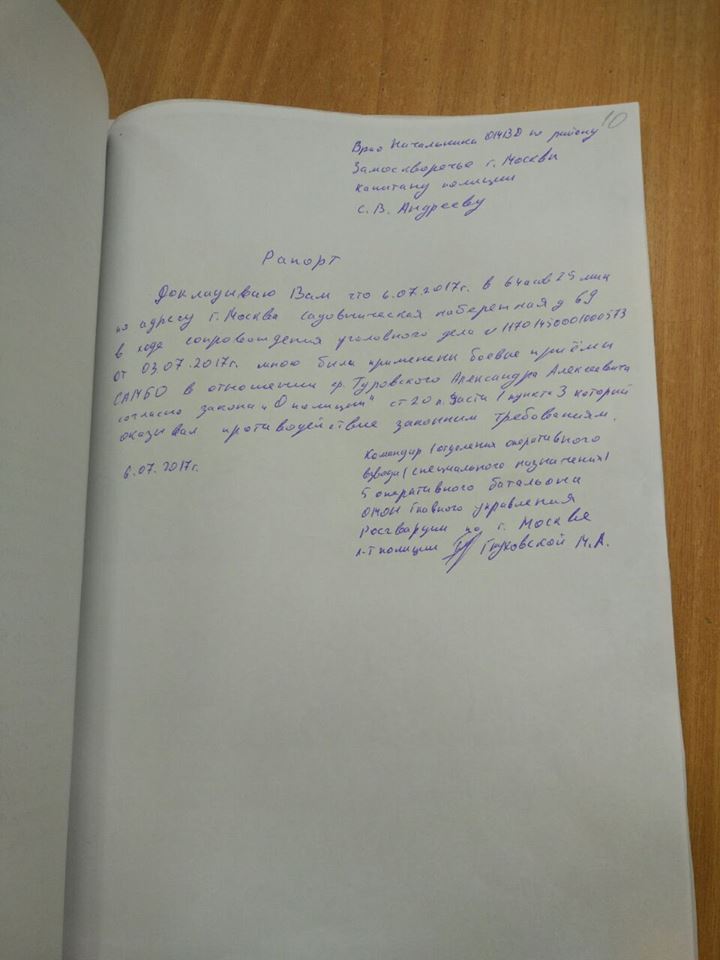 10
Врио Начальника ОМВД по району
Замоскворечье г. Москвы
капитану полиции
С. В. Андрееву
Рапорт
Докладываю Вам что 6.07.2017г. в 6 часов 25 мин
по адресу г. Москва Садовническая набережная д 69
в ходе сопровождения уголовного дела № 11701450001000573
от 03.07.2017г. мною были применены боевые приёмы
САМБО в отношении гр. Туровского Александра Алексеевича
согласно закона "О полиции" ст 20 п. части 1 пункта 3 который
оказывал противодействие законным требованиям.
6.07.2017г.
Командир 1 отделения оперативного
взвода (специального назначения)
5 оперативного батальона
ОМОН Главного управления
Росгвардии по г. Москве
л-т полиции Глуховской М.А.